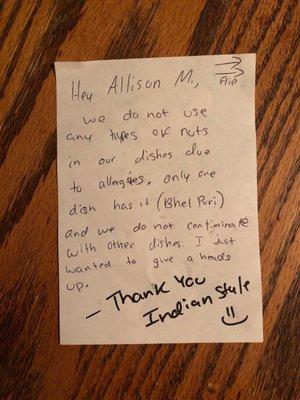 Hey Allison M.,
Flip
we do not use
any types of nuts
in our dishes due
to allergies. only one
dish has it (Bhel Puri)
and we do not contiminate
with other dishes. I Just
wanted to give a heads
up.
- Thank You
Indian Style